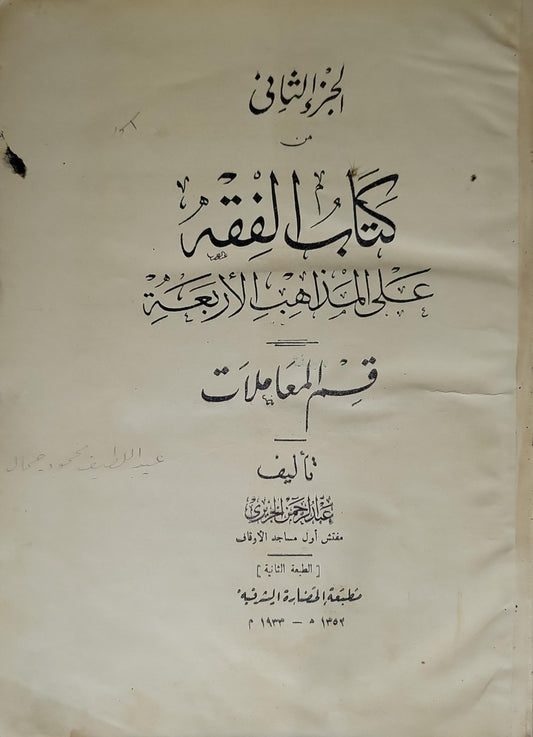 الجزء الثاني
من
كتاب الفقه
على المذاهب الأربعة
قسم المعاملات
تأليف
عبد الرحمن الجزيري
مفتش أول مساجد الأوقاف
[ الطبعة الثانية ]
مطبعة الحضارة الشرقية
١٣٥٢ ه — ١٩٣٣ م
عبد اللطيف محمود جمال